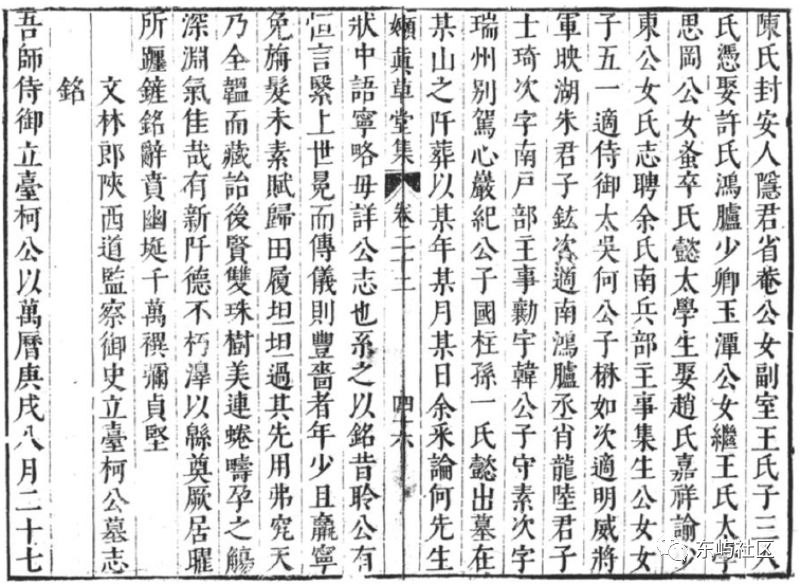 陳氏封安人隱君省菴公女副室王氏子三大
氏憑娶許氏鴻臚少卿玉潭公女繼王氏太學
思岡公女蚤卒氏懿太學生娶趙氏嘉祥諭少
東公女氏志聘余氏南兵部主事集生公女女
子五一適侍御太吳何公子楙如次適明威將
軍映湖朱君子鉉次適南鴻臚丞肖龍陸君子
士琦次字南戶部主事勷宇韓公子守素次字
瑞州別駕心嚴紀公子國柱孫一氏懿出墓在
某山之阡葬以某年某月某日余采論何先生
嬾真草堂集 卷二十二 四十六
狀中語寧略毋詳公志也系之以銘昔聆公有
恒言繄上世冕而傳儀則豐嗇者年少且麤寧
免旃髮未素賦歸田履坦坦過其先用弗究天
乃全韞而藏詒後賢雙珠樹美連蜷疇孕之觴
深淵氣佳哉有新阡德不朽濞以緜奠厥居瑾
所躔鏟銘辭賁幽埏千萬禩彌貞堅
文林郎陝西道監察御史立臺柯公墓志
銘
吾師侍御立臺柯公以萬曆庚戌八月二十七
东屿社区